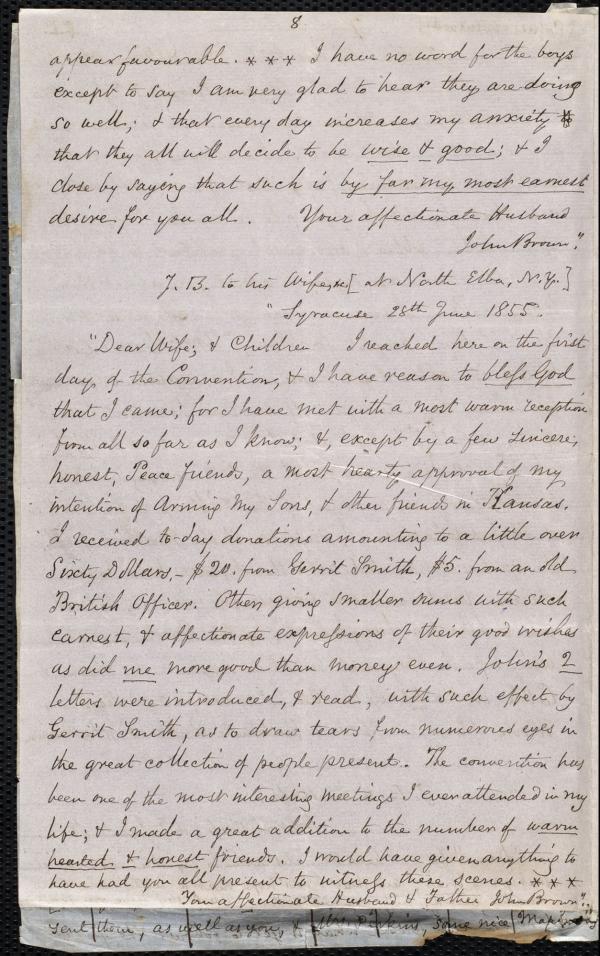 8
appear favourable. * * * I have no word for the boys
except to say I am very glad to hear they are doing
so well; & that every day increases my anxiety
that they all will decide to be wise & good; & I
close by saying that such is by far my most earnest
desire for you all. Your affectionate Husband
John Brown".
J. B. to his Wife, &c. [at North Elba, N.Y.]
"Syracuse 28th June 1855.
"Dear Wife; & Children I reached here on the first
day of the Convention, & I have reason to bless God
that I came; for I have met with a most warm reception
from all so far as I know; &, except by a few sincere,
honest, Peace friends, a most hearty approval of my
intention of Arming my Sons, & other friends in Kansas.
I received to-day donations amounting to a little over
Sixty Dollars, - $20. from Gerrit Smith, $5. from an old
British Officer. Others giving smaller sums with such
earnest, & affectionate expressions of their good wishes
as did me more good than money even. John's 2
letters were introduced, & read, with such effect by
Gerrit Smith, as to draw tears from numerous eyes in
the great collection of people present. The convention has
been one of the most interesting meetings I ever attended in my
life; & I made a great addition to the number of warm
hearted & honest friends. I would have given anything to
have had you all present to witness these scenes. * * *
Your affectionate Husband & Father John Brown".
sent them, as well as you, & Mrs. Perkins, some nice